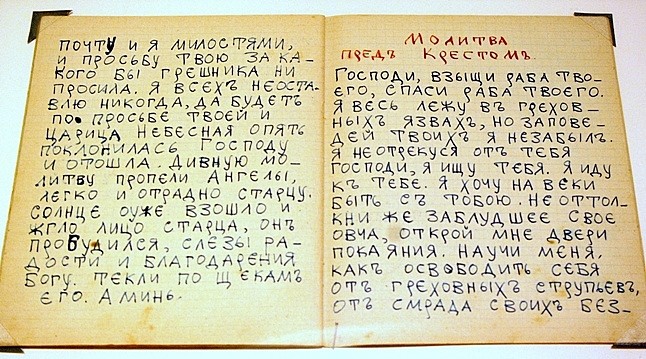 почту и я милостями,
и просьбу твою за ка-
кого бы грешника ни
просила. Я всехъ неоста-
влю никогда, да будетъ
по просьбе твоей и
царица небесная опять
поклонилась Господу
и отошла. Дивную мо-
литву пропели Ангелы,
легко и отрадно старцу.
Солнце оуже взошло и
жгло лицо старца, онъ
пробудился, слезы ра-
дости и благодарения
Богу. текли по щекамъ
его. Аминь.
Молитва
предъ Крестомъ.
Господи, взыщи раба тво-
его, спаси раба твоего.
Я весь лежу въ грехов-
ныхъ язвахъ, но запове-
дей твоихъ я незабылъ.
Я неотрекуся отъ тебя
Господи, я ищу тебя. Я иду
къ тебе. Я хочу на веки
быть съ тобою. Не оттол-
кни же заблудшее свое
овча, открой мне двери
покаяния. Научи меня.
какъ освободить себя
отъ греховныхъ струпьевъ,
отъ смрада своихъ без-